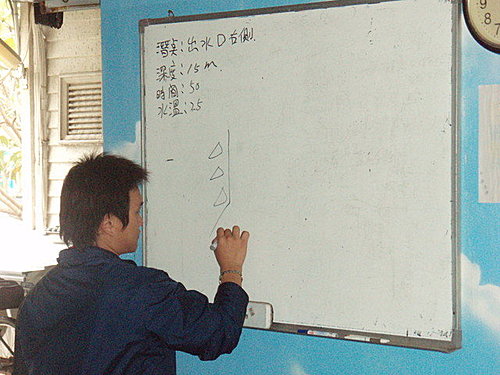 潛點:出水口右側
深度:15m
時間:50
水溫:25
9
8
7